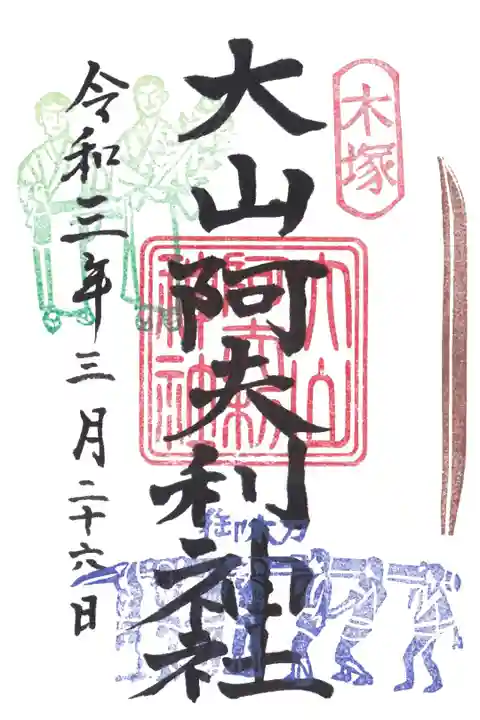 木塚
大山阿夫利神社
大山阿夫利神社
令和三年三月二十六日
御木太刀